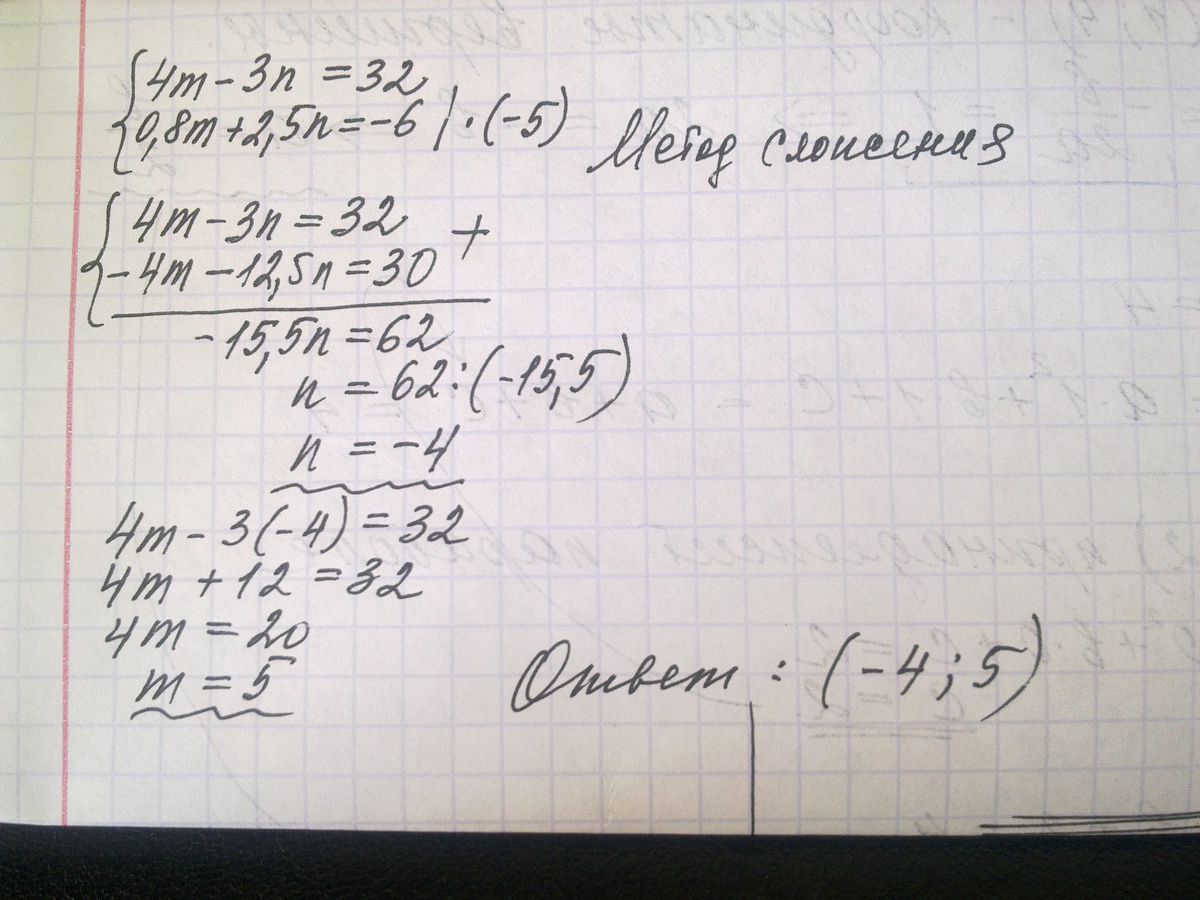 4m - 3n = 32
0,8m + 2,5n = -6 | · (-5)
Метод сложения
4m - 3n = 32 +
-4m - 12,5n = 30
-15,5n = 62
n = 62 : (-15,5)
n = -4
4m - 3(-4) = 32
4m + 12 = 32
4m = 20
m = 5
Ответ : (-4; 5)